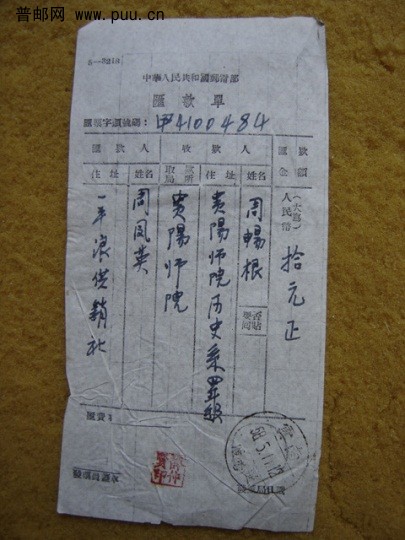 普邮网 www.puu.cn
5—3213
中華人民共和國郵電部
匯款單
匯票字頭號碼:甲4100484
匯款人
收款人
匯款金額
住址
姓名
取款局所
住址
姓名
人民幣
(大寫)
拾元正
周暢根
否貼
貴陽師院历史系四年級
貴陽師院
周凤英
一平浪供銷社
匯費: